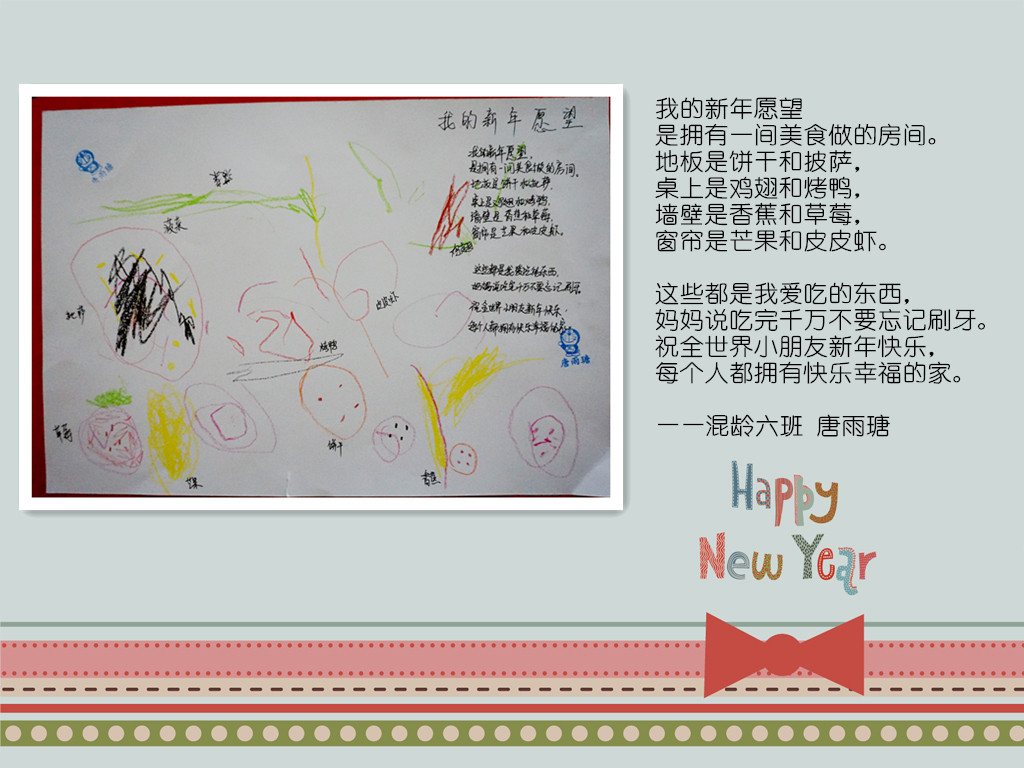 我的新年愿望
我的新年愿望
是拥有一间美食做的房间。
地板是饼干和披萨,
桌上是鸡翅和烤鸭,
墙壁是香蕉和草莓,
窗帘是芒果和皮皮虾。
这些都是我爱吃的东西,
妈妈说吃完千万不要忘记刷牙。
祝全世界小朋友新年快乐,
每个人都拥有快乐幸福的家。
唐雨瑭
菠菜
皮皮虾
烤鸭
草莓
饼干
芒果
香蕉
唐雨瑭
我的新年愿望
是拥有一间美食做的房间。
地板是饼干和披萨，
桌上是鸡翅和烤鸭，
墙壁是香蕉和草莓，
窗帘是芒果和皮皮虾。
这些都是我爱吃的东西，
妈妈说吃完千万不要忘记刷牙。
祝全世界小朋友新年快乐，
每个人都拥有快乐幸福的家。
——混龄六班 唐雨瑭
Happy
New Year